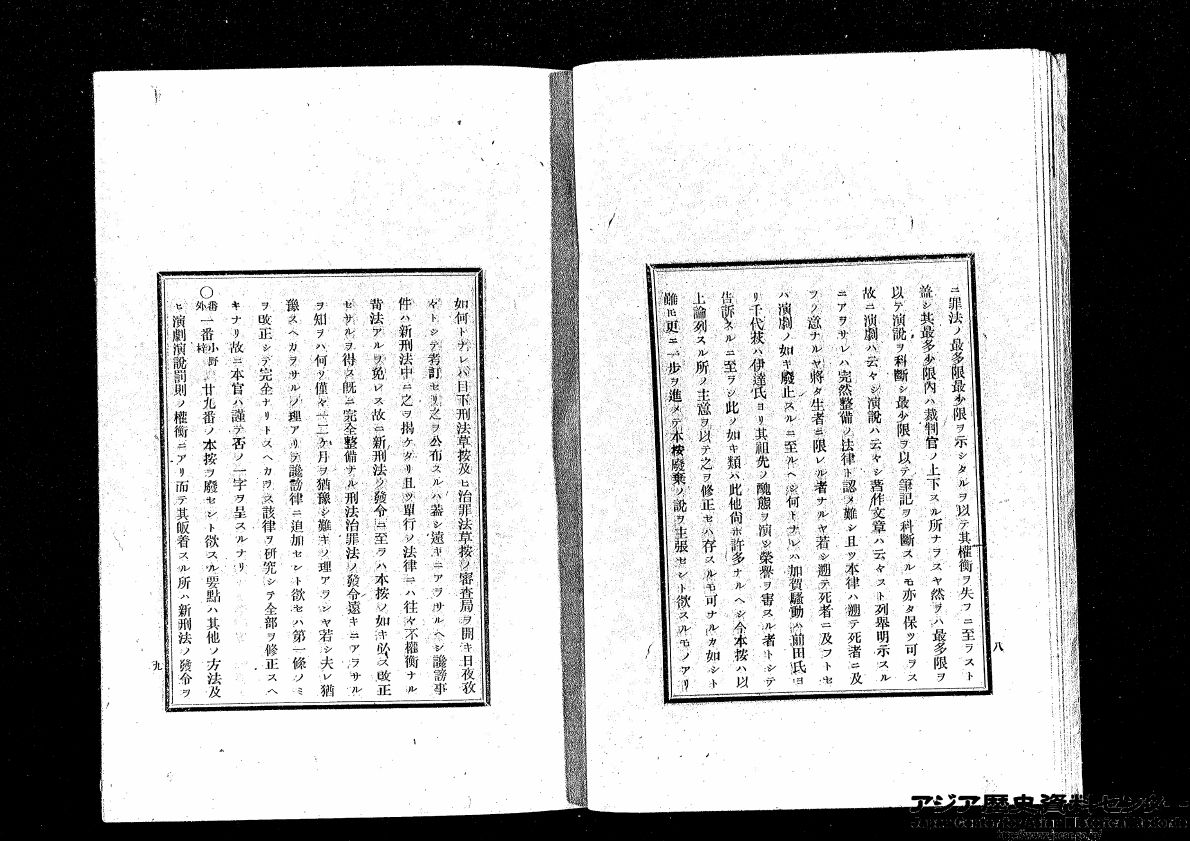 ニ罪法ノ最多限最少限ヲ示シタルヲ以テ其權衡ヲ失フニ至ラスト
蓋シ其最多少限內ハ裁判官ノ上下スル所ナヲスヤ然ヲハ最多限ヲ
以テ演說ヲ科斷シ最少限ヲ以テ筆記ヲ科斷スルモ亦タ保ツ可ラス
故ニ演劇ハ云々シ演說ハ云々シ著作文章ハ云々スト列擧明示スル
ニアヲサレハ完然整備ノ法律ト認メ難シ且ツ本律ハ遡テ死者ニ及
フノ意ナルヤ將タ生者ニ限レル者ナルヤ若シ遡テ死者ニ及フトセ
ハ演劇ノ如キ廢止スルニ至ルヘシ何トナレハ加賀騷動ハ前田氏ヨ
リ千代萩ハ伊達氏ヨリ其祖先ノ醜態ヲ演シ榮譽ヲ害スル者トシテ
告訴スルニ至ラン此ノ如キ類ハ此他尙ホ許多ナルヘシ今本按ハ以
上論列スル所ノ主意ヲ以テ之ヲ修正セハ存スルモ可ナルカ如シト
雖ヒ更ニ一步ヲ進メテ本按廢棄ノ說ヲ主張セント欲スルモノアリ
八
如何トナレハ目下刑法草按及ヒ治罪法草按ノ審査局ヲ開キ日夜孜
々トシテ考訂セリ之ヲ公布スルハ蓋シ遠キニアヲサルヘシ讒謗事
件ハ新刑法中ニ之ヲ揭ケタリ且ツ單行ノ法律ニハ往々不權衡ナル
苛法アルヲ免レス故ニ新刑法ノ發令ニ至ラハ本按ノ如キ必ス改正
セサルヲ得ス旣ニ完全整備ナル刑法治罪法ノ發令遠キニアヲサル
ヲ知ヲハ何ソ僅々一二ケ月ヲ猶豫シ難キノ理アランヤ若シ夫レ猶
豫スヘカヲサルノ理アリテ讒謗律ニ追加セント欲セハ第一條ノミ
ヲ改正シテ完全ナリトスヘカヲス該律ヲ硏究シテ全部ヲ修正スヘ
キナリ故ニ本官ハ謹テ否ノ一字ヲ呈スルナリ
○番外一番小野梓 廿九番ノ本按ヲ廢セント欲スル要點ハ其他ノ方法及
ヒ演劇演說罰則ノ權衡ニアリ而テ其皈着スル所ハ新刑法ノ發令ヲ
九
アジア歴史資料センター
Japan Center for Asian Historical Records
http://www.jacar.go.jp